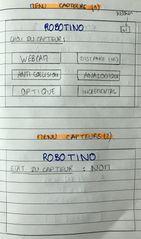 MENU CAPTEURS (1)
ROBOTINO
CHOIX DU CAPTEUR :
WEBCAM
DISTANCE (IR)
ANTI-COLLISION
ANALOGIQUE
OPTIQUE
INCREMENTAL
MENU CAPTEURS (2)
ROBOTINO
ETAT DU CAPTEUR : NON